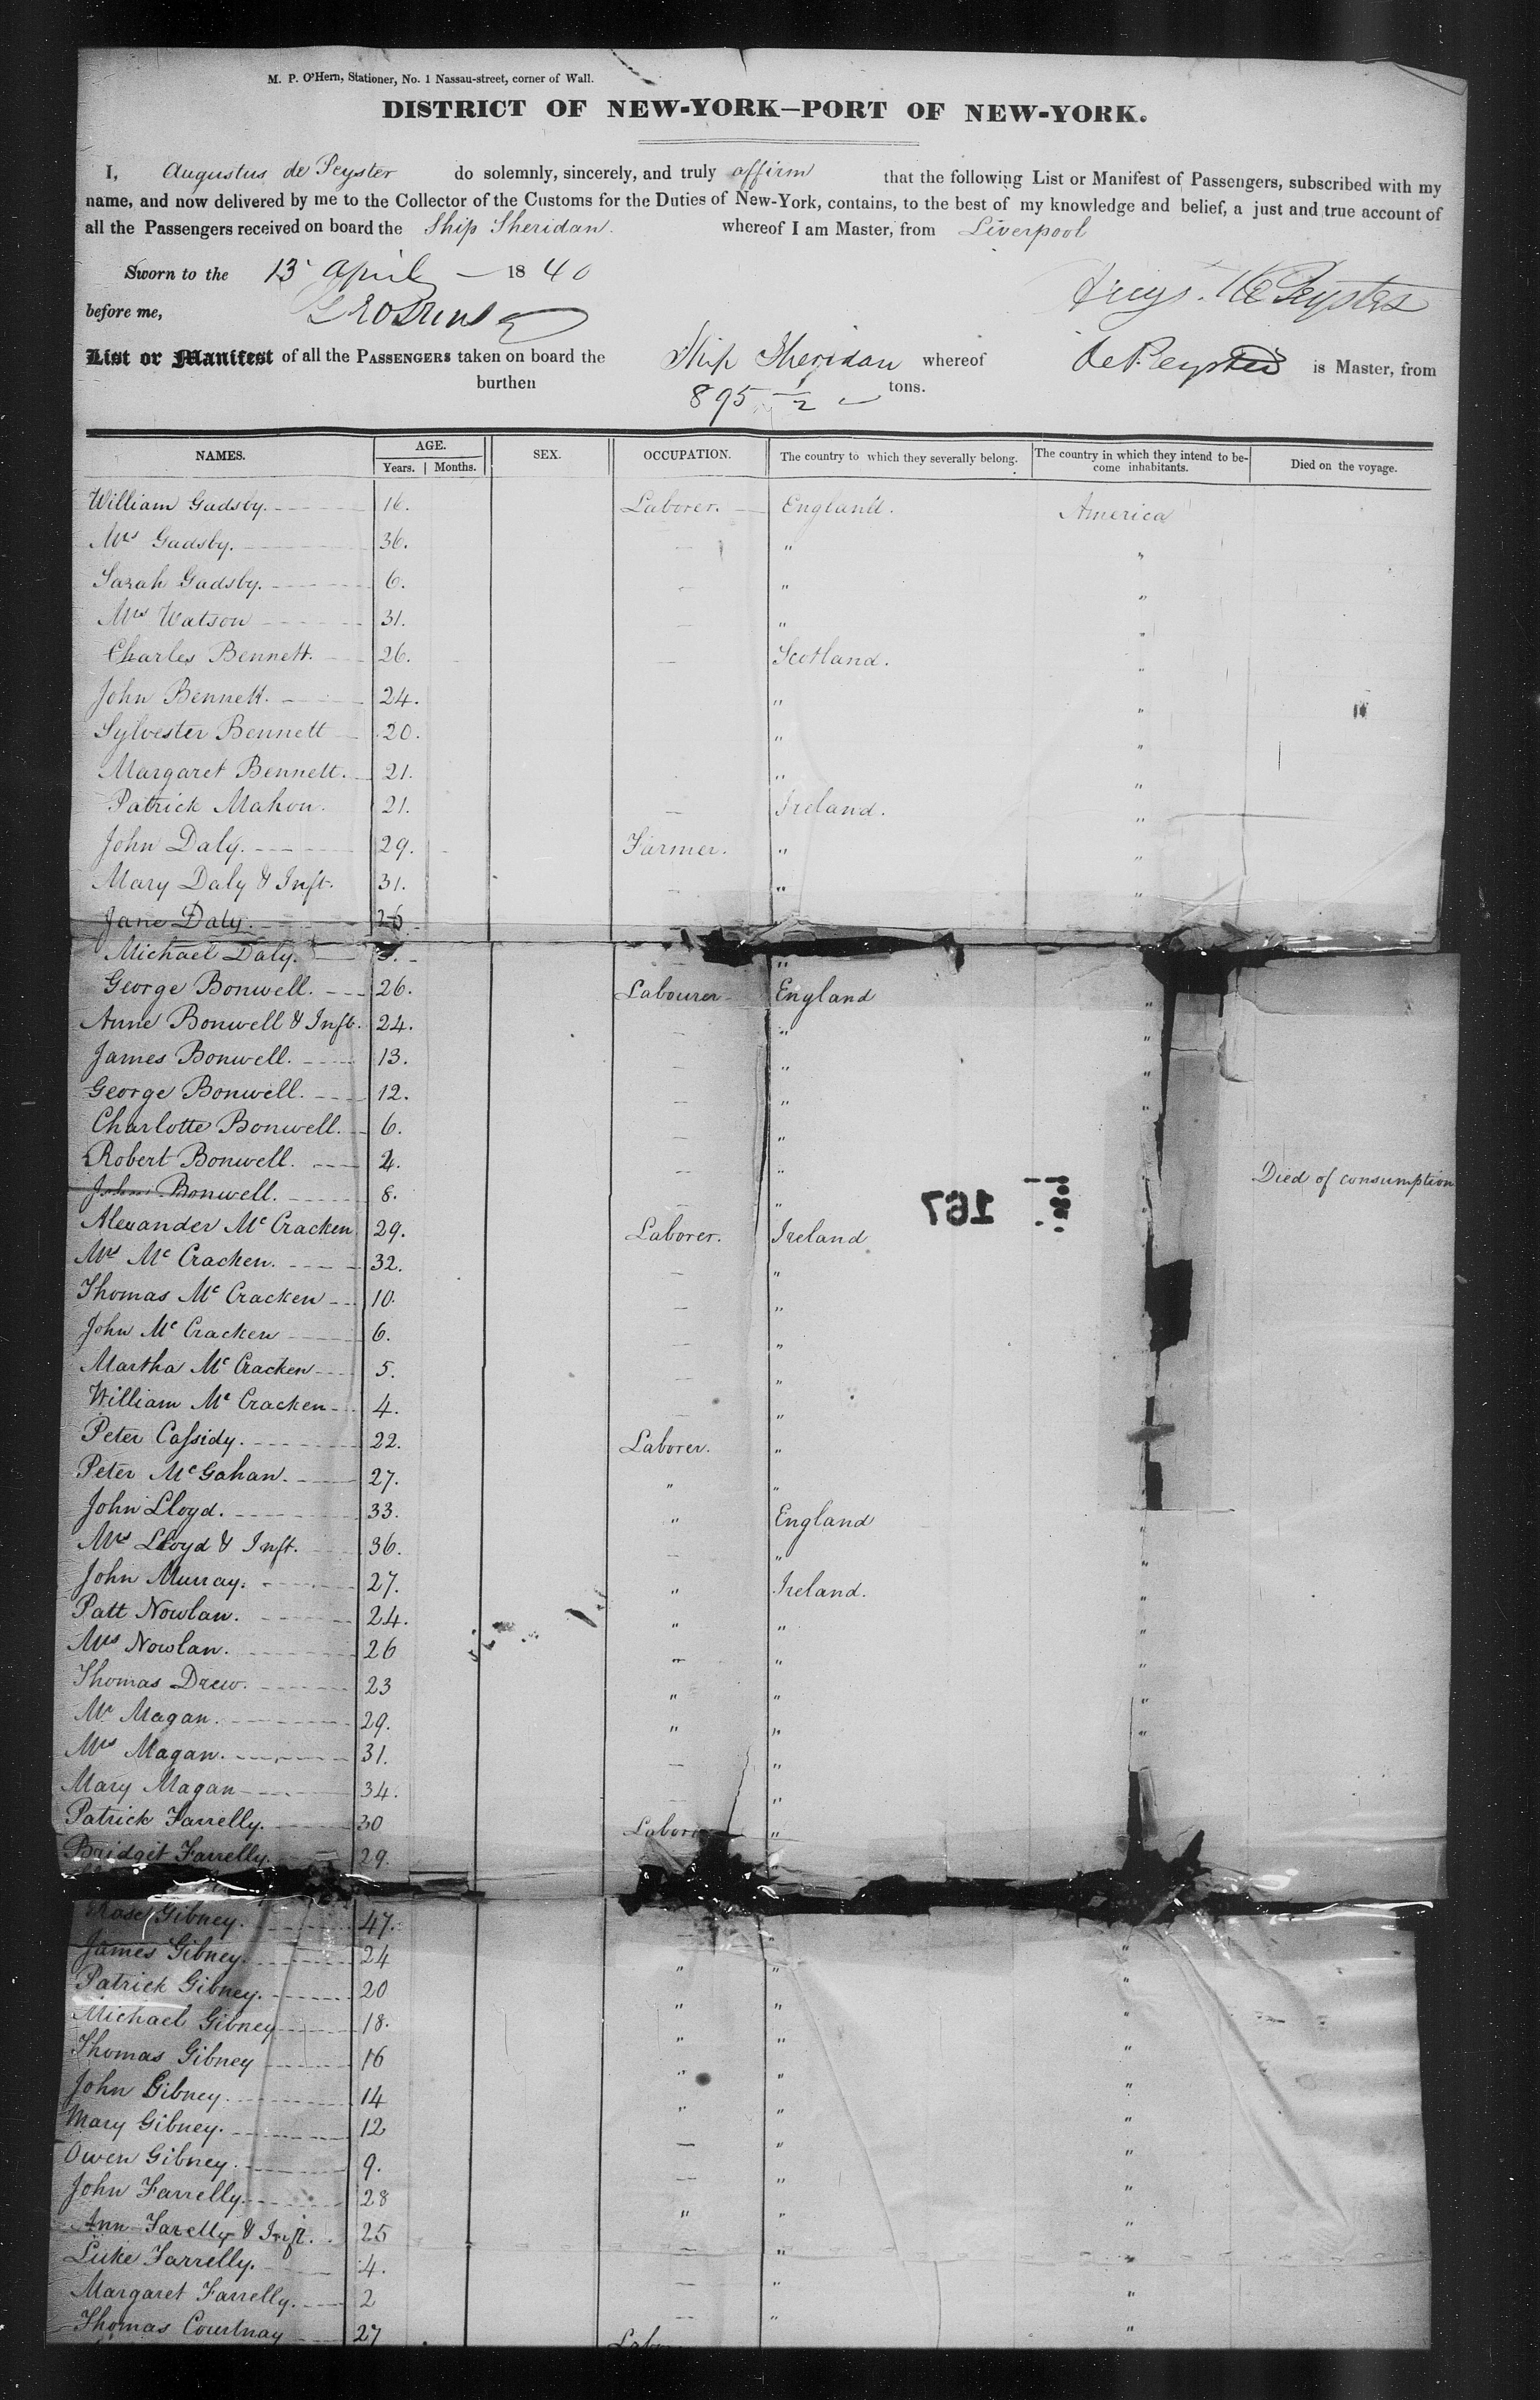 M. P. O'Hern, Stationer, No. 1 Nassau-street, corner of Wall.
DISTRICT OF NEW-YORK—PORT OF NEW-YORK.
I, Augustus de Peyster do solemnly, sincerely, and truly affirm that the following List or Manifest of Passengers, subscribed with my
name, and now delivered by me to the Collector of the Customs for the Duties of New-York, contains, to the best of my knowledge and belief, a just and true account of
all the Passengers received on board the Ship Sheridan. whereof I am Master, from Liverpool
Sworn to the 13 April — 1840
Augs. De Peyster
before me,
List or Manifest of all the PASSENGERS taken on board the Ship Sheridan whereof DePeyster is Master, from
burthen 895 1/2 tons.
NAMES. AGE. SEX. OCCUPATION. The country to which they severally belong. The country in which they intend to be-come inhabitants. Died on the voyage.
Years. Months.
William Gadsby. 16. Laborer. England. America
Mrs Gadsby. 36. — " "
Sarah Gadsby. 6. — " "
Mrs Watson 31. — " "
Charles Bennett. 26. — Scotland. "
John Bennett. 24. " "
Sylvester Bennett 20. " "
Margaret Bennett. 21. " "
Patrick Mahon. 21. — Ireland. "
John Daly. 29. Farmer. " "
Mary Daly & Inft. 31. — " "
Jane Daly. "
Michael Daly. 3. — "
George Bonwell. 26. Labourer England "
Anne Bonwell & Inft. 24. — " "
James Bonwell. 13. — " "
George Bonwell. 12. — " "
Charlotte Bonwell. 6. — "
Robert Bonwell. 4. — "
John Bonwell. 8. " Died of consumption
167
Alexander McCracken 29. Laborer. Ireland
Mrs McCracken. 32. — "
Thomas McCracken 10. — "
John McCracken 6. — "
Martha McCracken 5. — "
William McCracken 4. — "
Peter Cassidy. 22. Laborer. "
Peter McGahan. 27. " "
John Lloyd. 33. " England "
Mrs Lloyd & Inft. 36. — " "
John Murray. 27. " Ireland. "
Patt Nowlan. 24. " " "
Mrs Nowlan. 26 " "
Thomas Drew. 23 " " "
Mr Magan. 29. " " "
Mrs Magan. 31. — "
Mary Magan 34. — "
Patrick Farrelly. 30 Labor "
Bridget Farrelly. 29. "
Rose Gibney. 47. — " "
James Gibney. 24 " " "
Patrick Gibney. 20 " " "
Michael Gibney 18. " " "
Thomas Gibney 16 " " "
John Gibney. 14 " " "
Mary Gibney. 12 — " "
Owen Gibney. 9. — " "
John Farrelly. 28 " " "
Ann Farelly & Inft. 25 — " "
Luke Farrelly. 4. — " "
Margaret Farrelly. 2 — " "
Thomas Courtnay 27 Labor